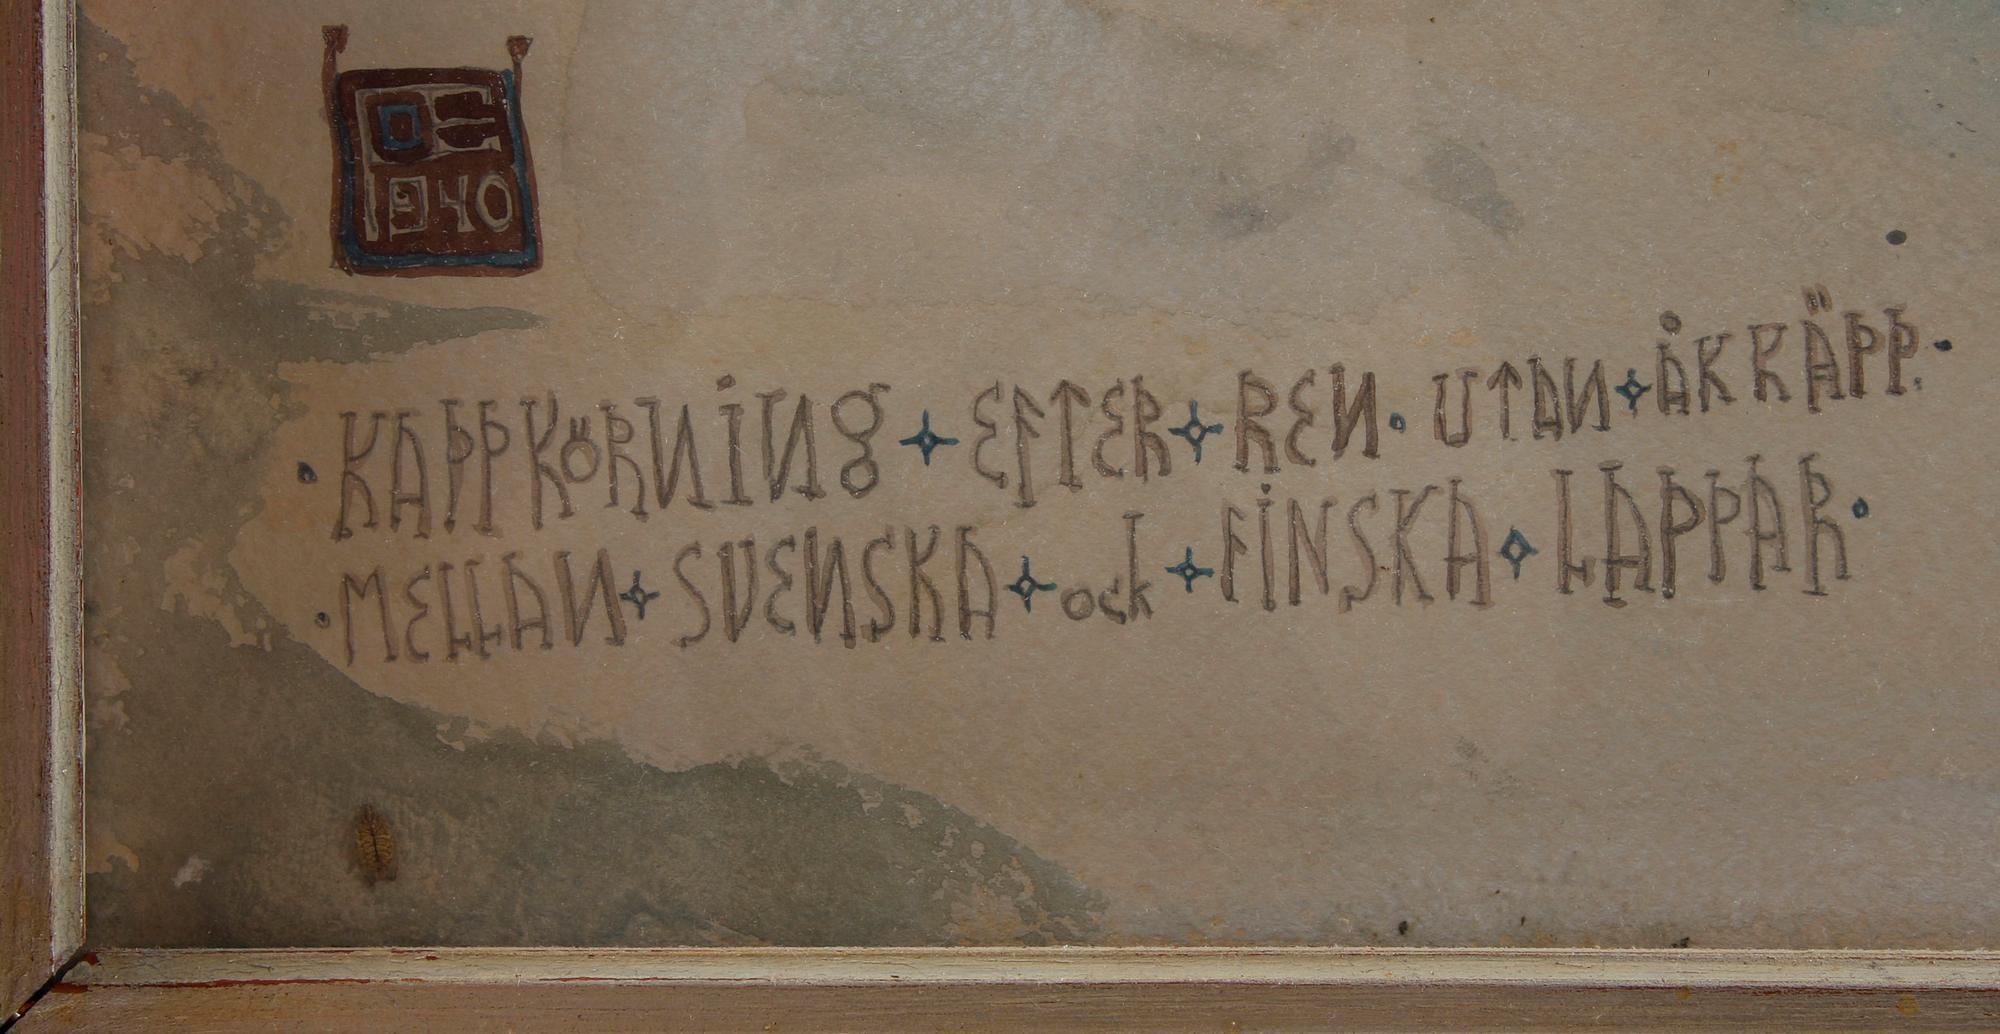 1940
• KAPPKÖRNING ✦ EFTER ✦ REN • UTAN ✦ ÅKKÄPP •
• MELLAN ✦ SVENSKA ✦ och ✦ FINSKA ✦ LAPPAR •